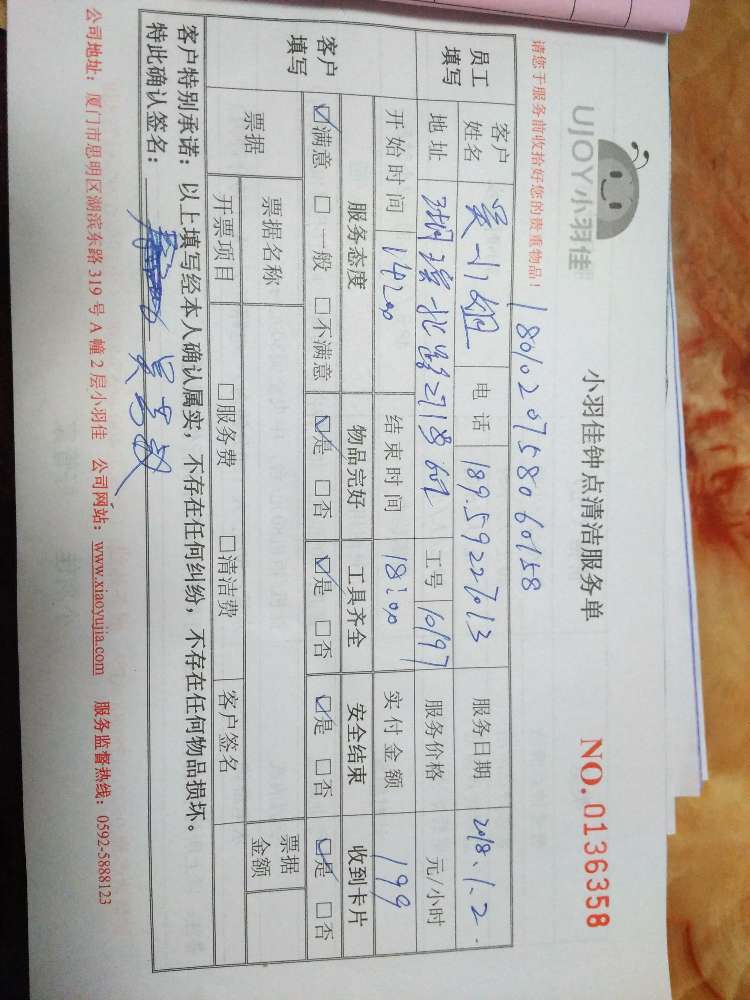 UJOY小羽佳
小羽佳钟点清洁服务单
NO. 0136358
请您于服务前收拾好您的贵重物品！
1801020758060158
员工填写
客户姓名 吴小姐 电话 189.59227013 服务日期 2018.1.2.
地址 湖滨北路27号 工号 10197 服务价格 元/小时
开始时间 14:00 结束时间 18:00 实付金额 199
客户填写
服务态度 物品完好 工具齐全 安全结束 收到卡片
☑满意 □一般 □不满意 ☑是 □否 ☑是 □否 ☑是 □否 ☑是 □否
票据 票据名称 票据金额
开票项目 □服务费 □清洁费 客户签名
客户特别承诺：以上填写经本人确认属实，不存在任何纠纷，不存在任何物品损坏。
特此确认签名：
公司地址：厦门市思明区湖滨东路319号A幢2层小羽佳 公司网站：www.xiaoyujia.com 服务监督热线：0592-5888123